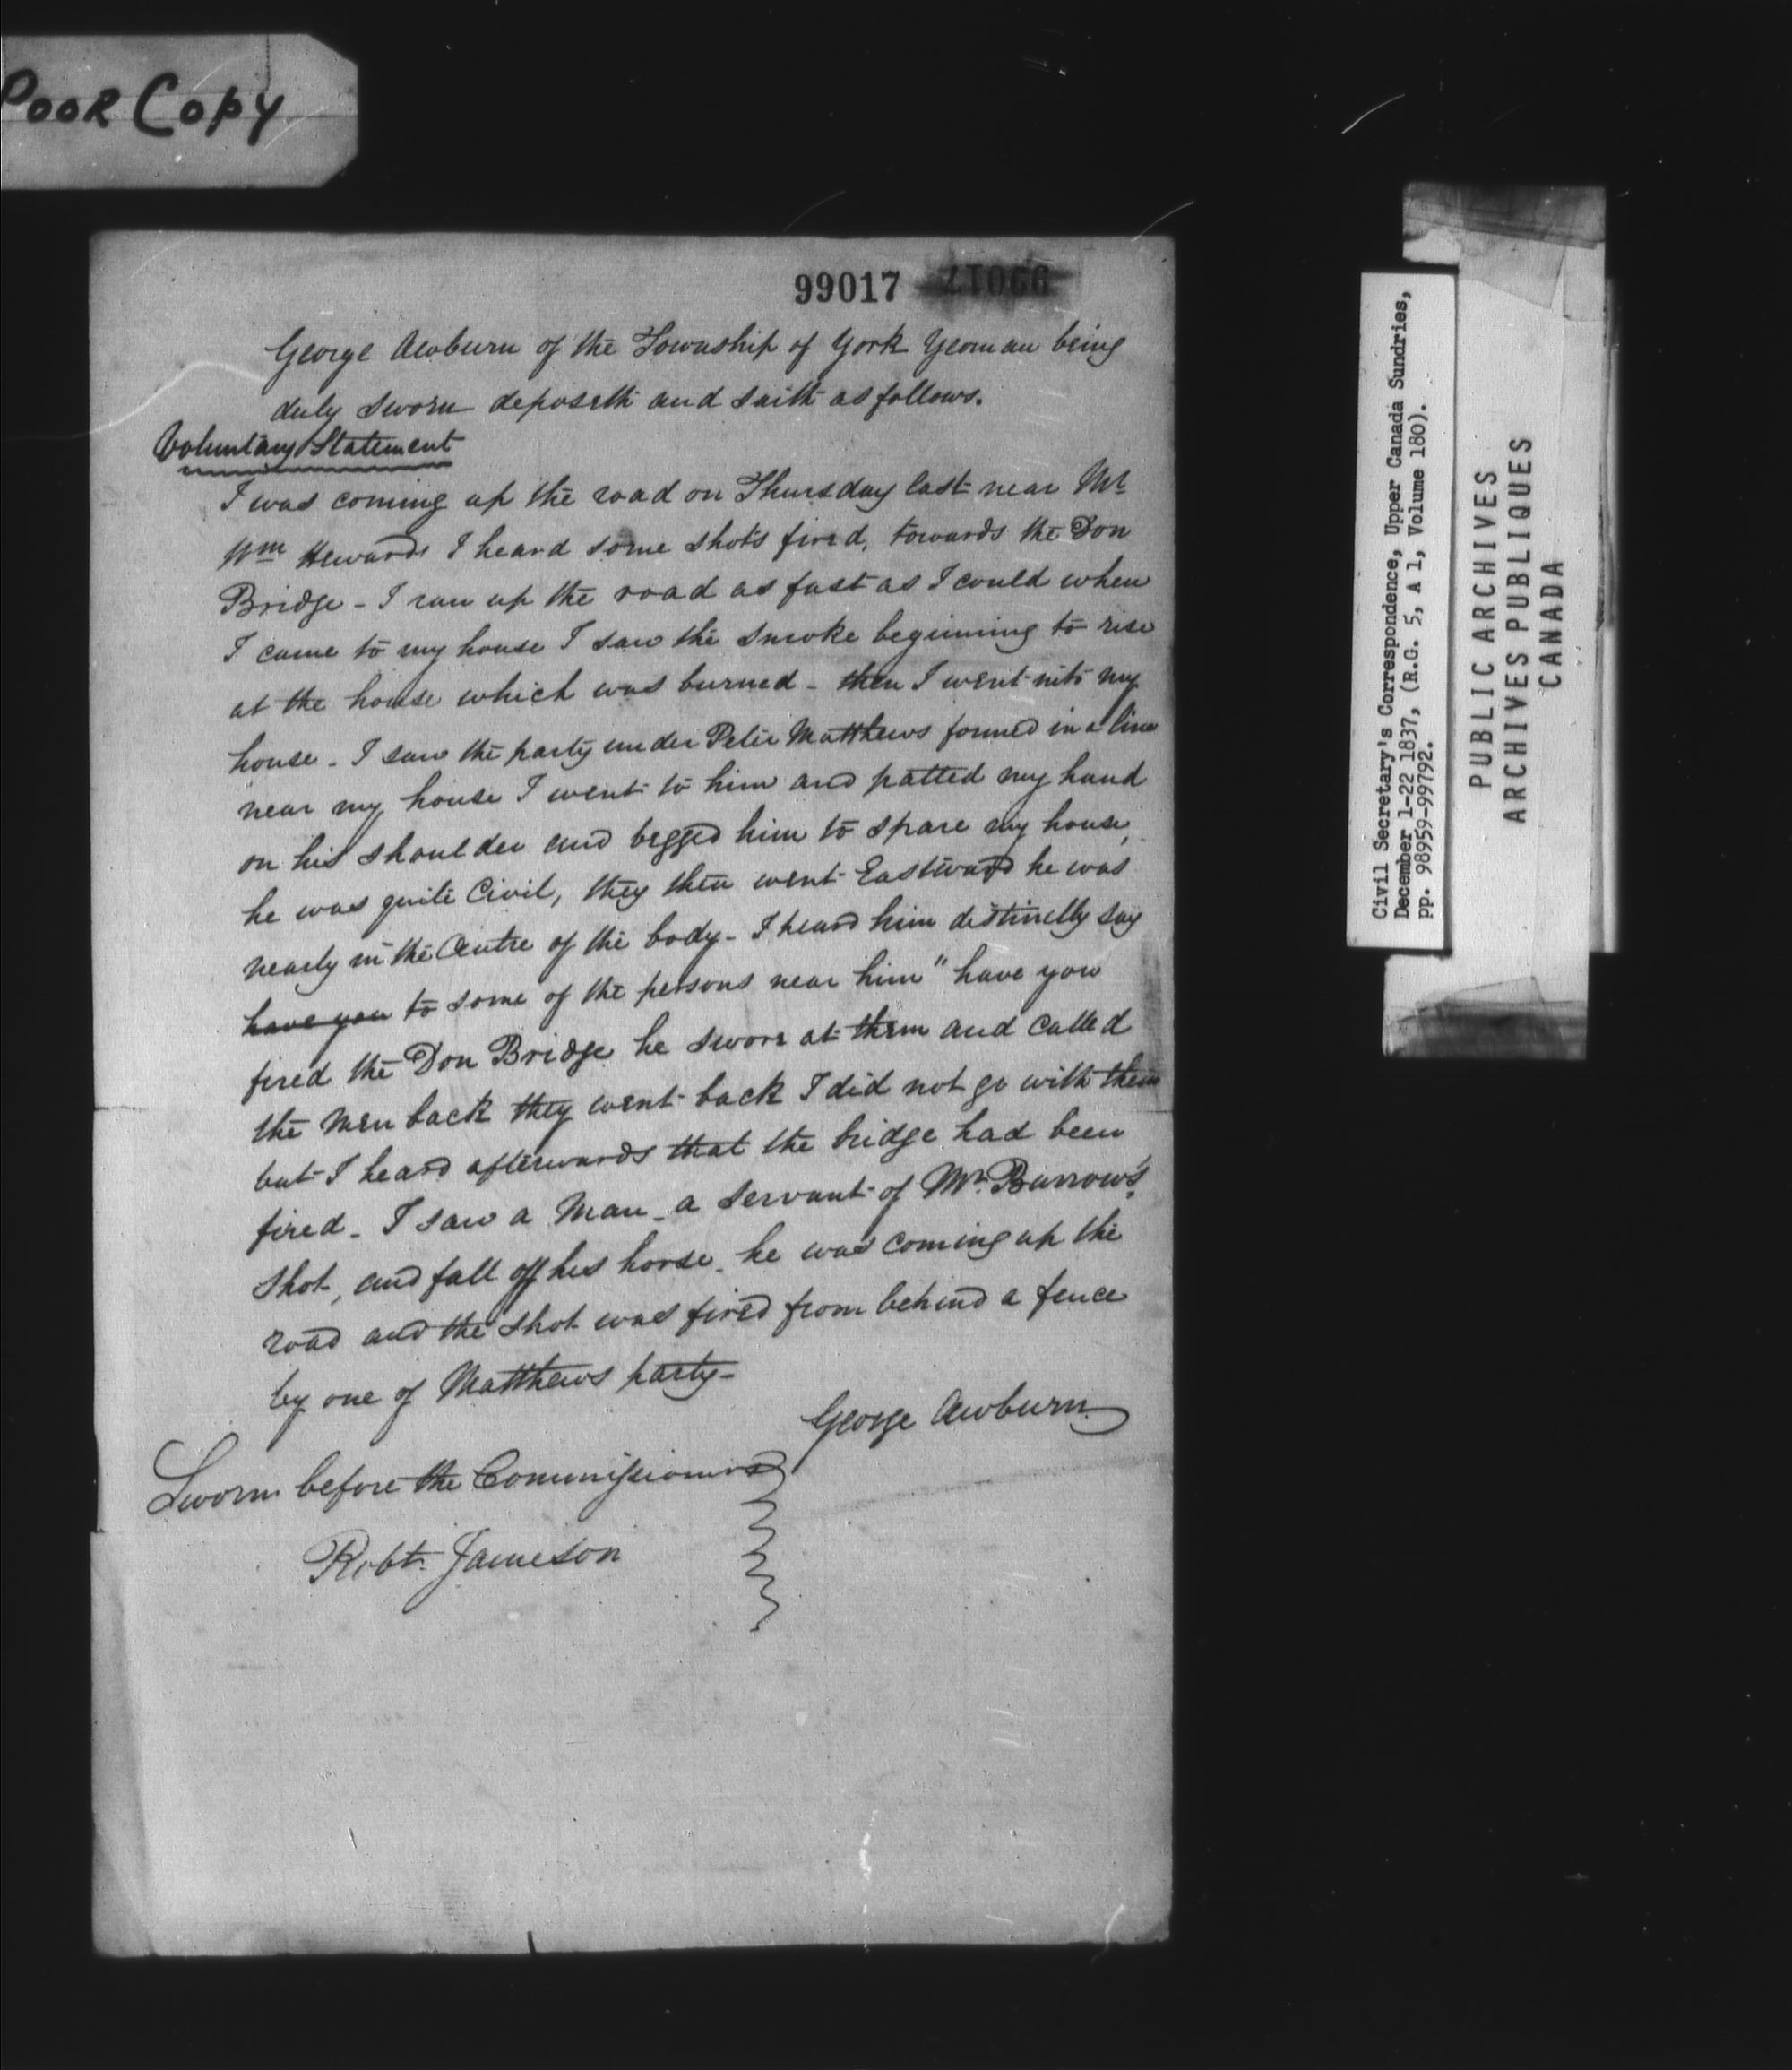 Poor Copy
99017
George Awburn of the Township of York Yeoman being
duly sworn deposeth and saith as follows.
Voluntary Statement
I was coming up the road on Thursday last near Mr
Wm Hewards I heard some shots fired, towards the Don
Bridge - I ran up the road as fast as I could when
I came to my house I saw the smoke beginning to rise
at the house which was burned - then I went into my
house - I saw the party under Peter Matthews formed in a line
near my house I went to him and patted my hand
on his shoulder and begged him to spare my house,
he was quite Civil, they then went Eastward he was
nearly in the Centre of the body - I heard him distinctly say
have you to some of the persons near him " have you
fired the Don Bridge he swore at them and called
the men back they went back I did not go with them
but I heard afterwards that the bridge had been
fired - I saw a Man - a servant of Mr. Burrow's,
shot, and fall off his horse - he was coming up the
road and the shot was fired from behind a fence
by one of Matthews party -
George Awburn
Sworn before the Commissioners
Robt. Jameson
Civil Secretary's Correspondence, Upper Canada Sundries,
December 1-22 1837, (R.G. 5, A 1, Volume 180).
pp. 98959-99792.
PUBLIC ARCHIVES
ARCHIVES PUBLIQUES
CANADA